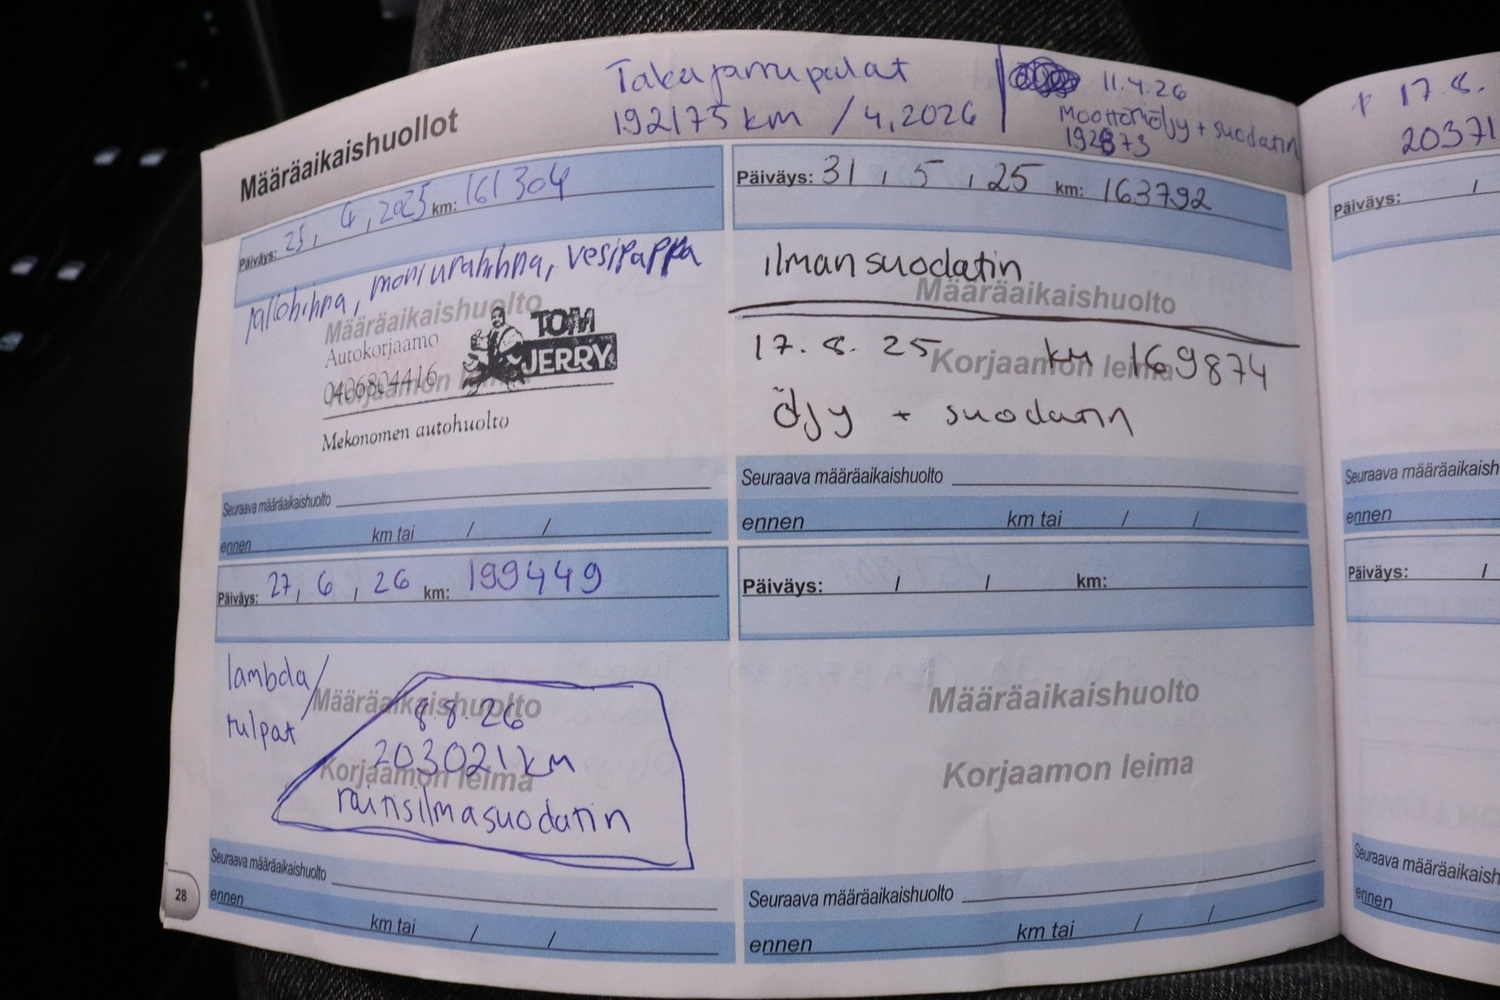 Määräaikaishuollot
Takajarrupalat
192175 km / 4.2026
11.4.26
Moottoriöljy + suodatin
192873
17.8.
20371
Päiväys: 25, 4, 2025 km: 161304
jakohihna, moniurahihna, vesipappa
Määräaikaishuolto
Autokorjaamo
TOM
JERRY
0406804416
Korjaamon leima
Mekonomen autohuolto
Seuraava määräaikaishuolto
ennen km tai / /
Päiväys: 31, 5, 25 km: 163792
ilmansuodatin
Määräaikaishuolto
17.8.25 km 169874
Korjaamon leima
öljy + suodatin
Seuraava määräaikaishuolto
ennen km tai / /
Päiväys: 27, 6, 26 km: 199449
lambda/
tulpat
Määräaikaishuolto
8.8.26
203021 km
Korjaamon leima
raitisilmasuodatin
Seuraava määräaikaishuolto
ennen km tai / /
28
Päiväys: / / km:
Määräaikaishuolto
Korjaamon leima
Seuraava määräaikaishuolto
ennen km tai / /
Päiväys: /
Seuraava määräaikaish
ennen
Päiväys: /
Seuraava määräaikaish
ennen